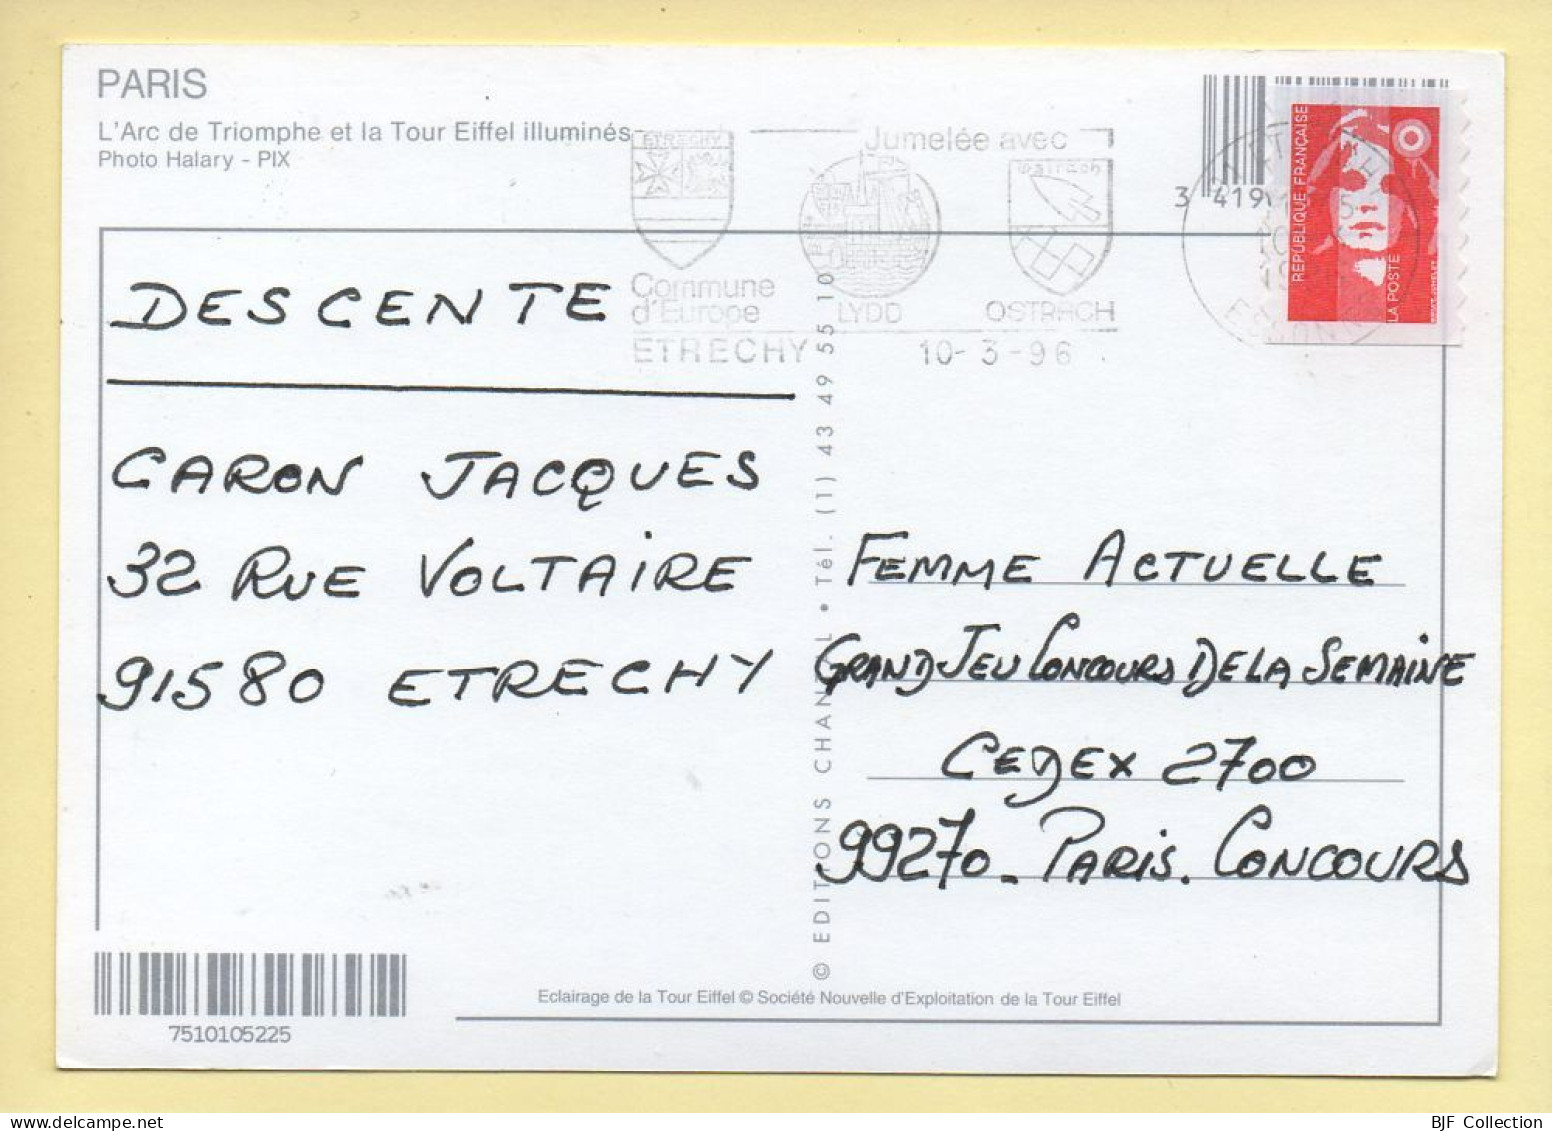 PARIS
L'Arc de Triomphe et la Tour Eiffel illuminés
Photo Halary - PIX
ETRECHY
Jumelée avec
Ostrach
Commune
d'Europe
LYDD
OSTRACH
ETRECHY 10-3-96
3 419
REPUBLIQUE FRANÇAISE
LA POSTE
DESCENTE
CARON JACQUES
32 RUE VOLTAIRE
91580 ETRECHY
FEMME ACTUELLE
GRAND JEU CONCOURS DE LA SEMAINE
CEDEX 2700
99270 - PARIS. CONCOURS
© EDITIONS CHANTAL • Tél. (1) 43 49 55 10
Eclairage de la Tour Eiffel © Société Nouvelle d'Exploitation de la Tour Eiffel
7510105225
BJF Collection